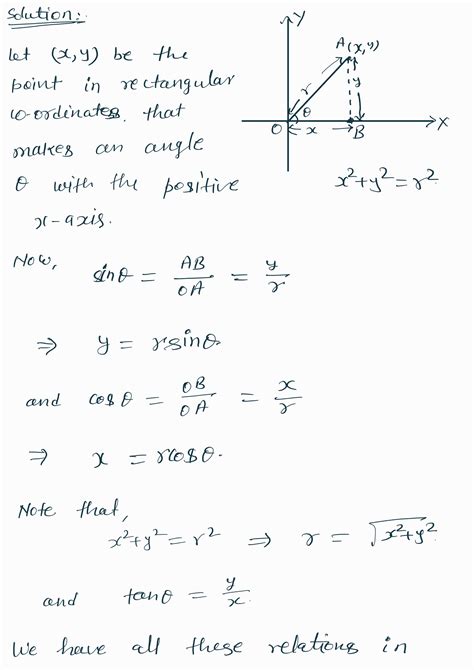 Solution:
Let (x,y) be the
point in rectangular
co-ordinates that
makes an angle
θ with the positive
x-axis.
Y
A(x,y)
r
y
θ
O x B X
x²+y²=r²
Now,
sinθ = AB/OA = y/r
⇒ y = rsinθ
and cosθ = OB/OA = x/r
⇒ x = rcosθ.
Note that,
x²+y²=r² ⇒ r = √x²+y²
and tanθ = y/x.
We have all these relations in